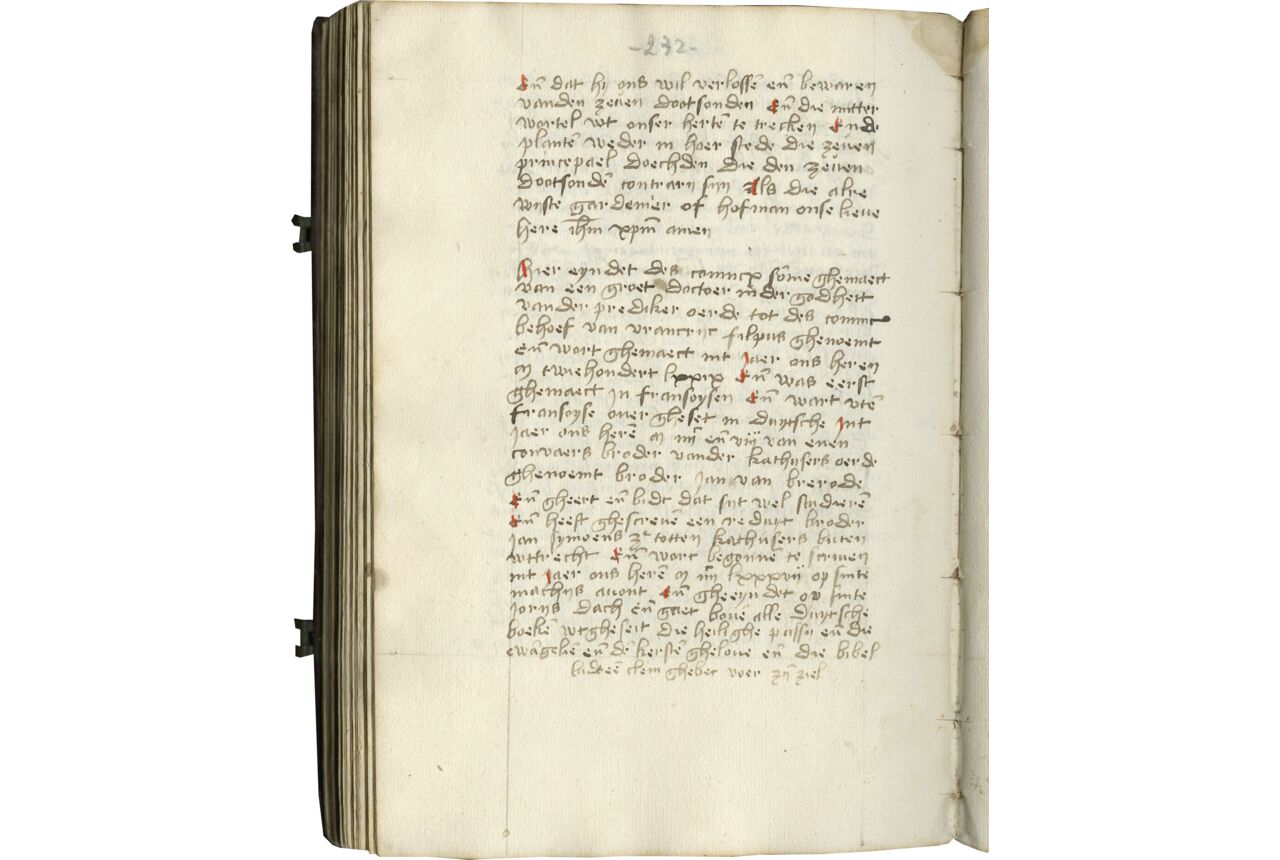 -232-
En̄ dat hi ons wil verlossē en̄ bewaren
vanden zeuen dootsonden En̄ die mitter
wortel wt onser hertē te trecken Ende
plantē weder in hoer stede die zeuen
princepael doechden die den zeuen
dootsondē contrari sijn Als die alre
wijste gardenier of hofman onse lieue
here ihm̄ xpm̄ amen
Hier eyndet des coninx sōme ghemaect
van een groet doctoer in der godheit
vander prediker oerde tot des coninc
behoef van vrancrijc filpus ghenoemt
En̄ wort ghemaect int Jaer ons heren
m twiehondert lxxix En̄ was eerst
ghemaect in fransoysen En̄ wart vtē
fransoyse ouer gheset in duytsche Int
Jaer ons herē m iiij en̄ viij van enen
convaers broder vander kathusers oerde
ghenoemt broder Jan van brerode
En̄ gheert en̄ bidt dat sijt wel studierē
En̄ heeft ghescreuē een reduyt broder
Jan symoens z totten kathusers buten
wttrecht En̄ wort begonnē te scriuen
int Jaer ons herē m iiij lxxxvij op sinte
mathijs auont En̄ gheeyndet op sinte
Jorijs dach en̄ gaet bouē alle duytsche
boekē wtgheseit die heilighe passy en̄ die
ewāgeliē en̄ dē kerstē gheloue en̄ die bibel
bidt eē clein ghebet voer zijn ziel